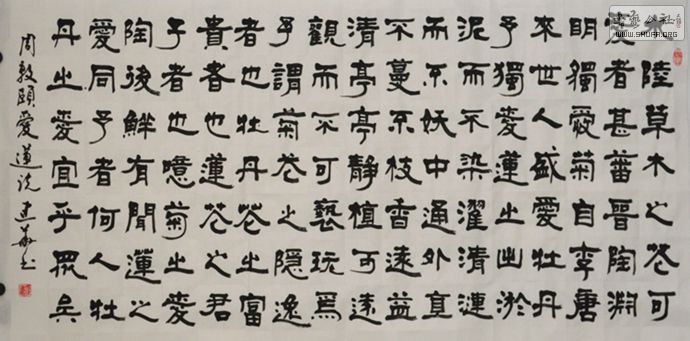 陸草木之花可
愛者甚蕃晉陶淵
明獨愛菊自李唐
來世人盛愛牡丹
予獨愛蓮之出淤
泥而不染濯清漣
而不妖中通外直
不蔓不枝香遠益
清亭亭靜植可遠
觀而不可褻玩焉
予謂菊花之隱逸
者也牡丹花之富
貴者也蓮花之君
子者也噫菊之愛
陶後鮮有聞蓮之
愛同予者何人牡
丹之愛宜乎眾矣
周敦頤愛蓮說 建華書
書藝公社
WWW.SHUFA.ORG